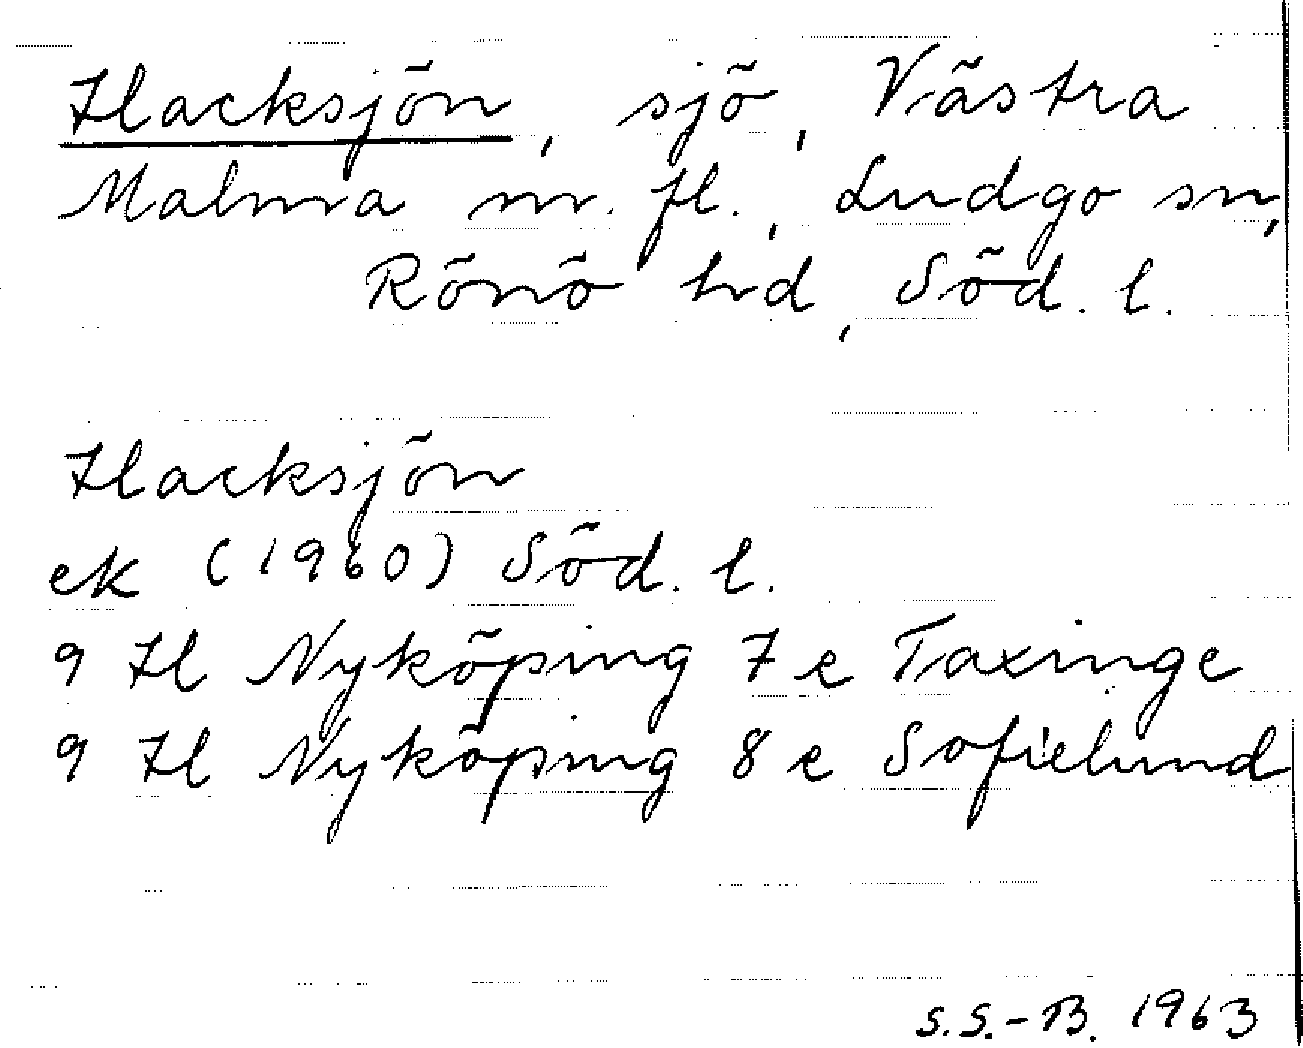 Hacksjön, sjö, Västra
Malma m. fl., Ludgo sn,
Rönö hd, Söd. l.
Hacksjön
ek (1960) Söd. l.
9 H Nyköping 7 e Taxinge
9 H Nyköping 8 e Sofielund
S.S.-B. 1963